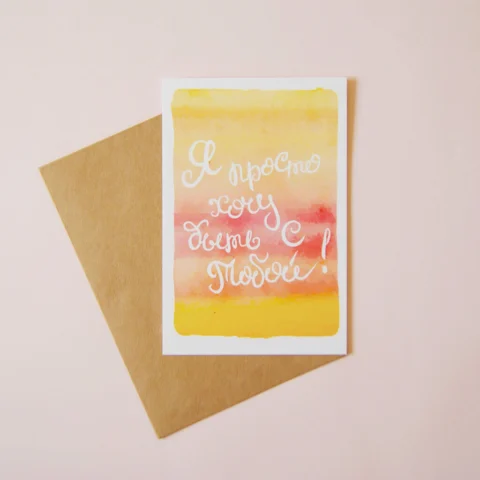 Я просто
хочу
быть с
Тобой!